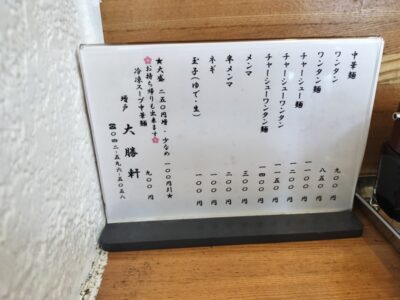 中華麺 九〇〇円
ワンタン 八五〇円
ワンタン麺 一一〇〇円
チャーシュー麺 一二〇〇円
チャーシューワンタン 一一五〇円
チャーシューワンタン麺 一四〇〇円
メンマ 三〇〇円
辛メンマ 二〇〇円
ネギ 一〇〇円
玉子(ゆで・生) 一〇〇円
★大盛 二五〇円増・少なめ 一〇〇円引★
🌸お持ち帰りも出来ます🌸
冷凍スープ中華麺 九〇〇円
増戸 大勝軒
☎〇四二・五九六・五〇五八